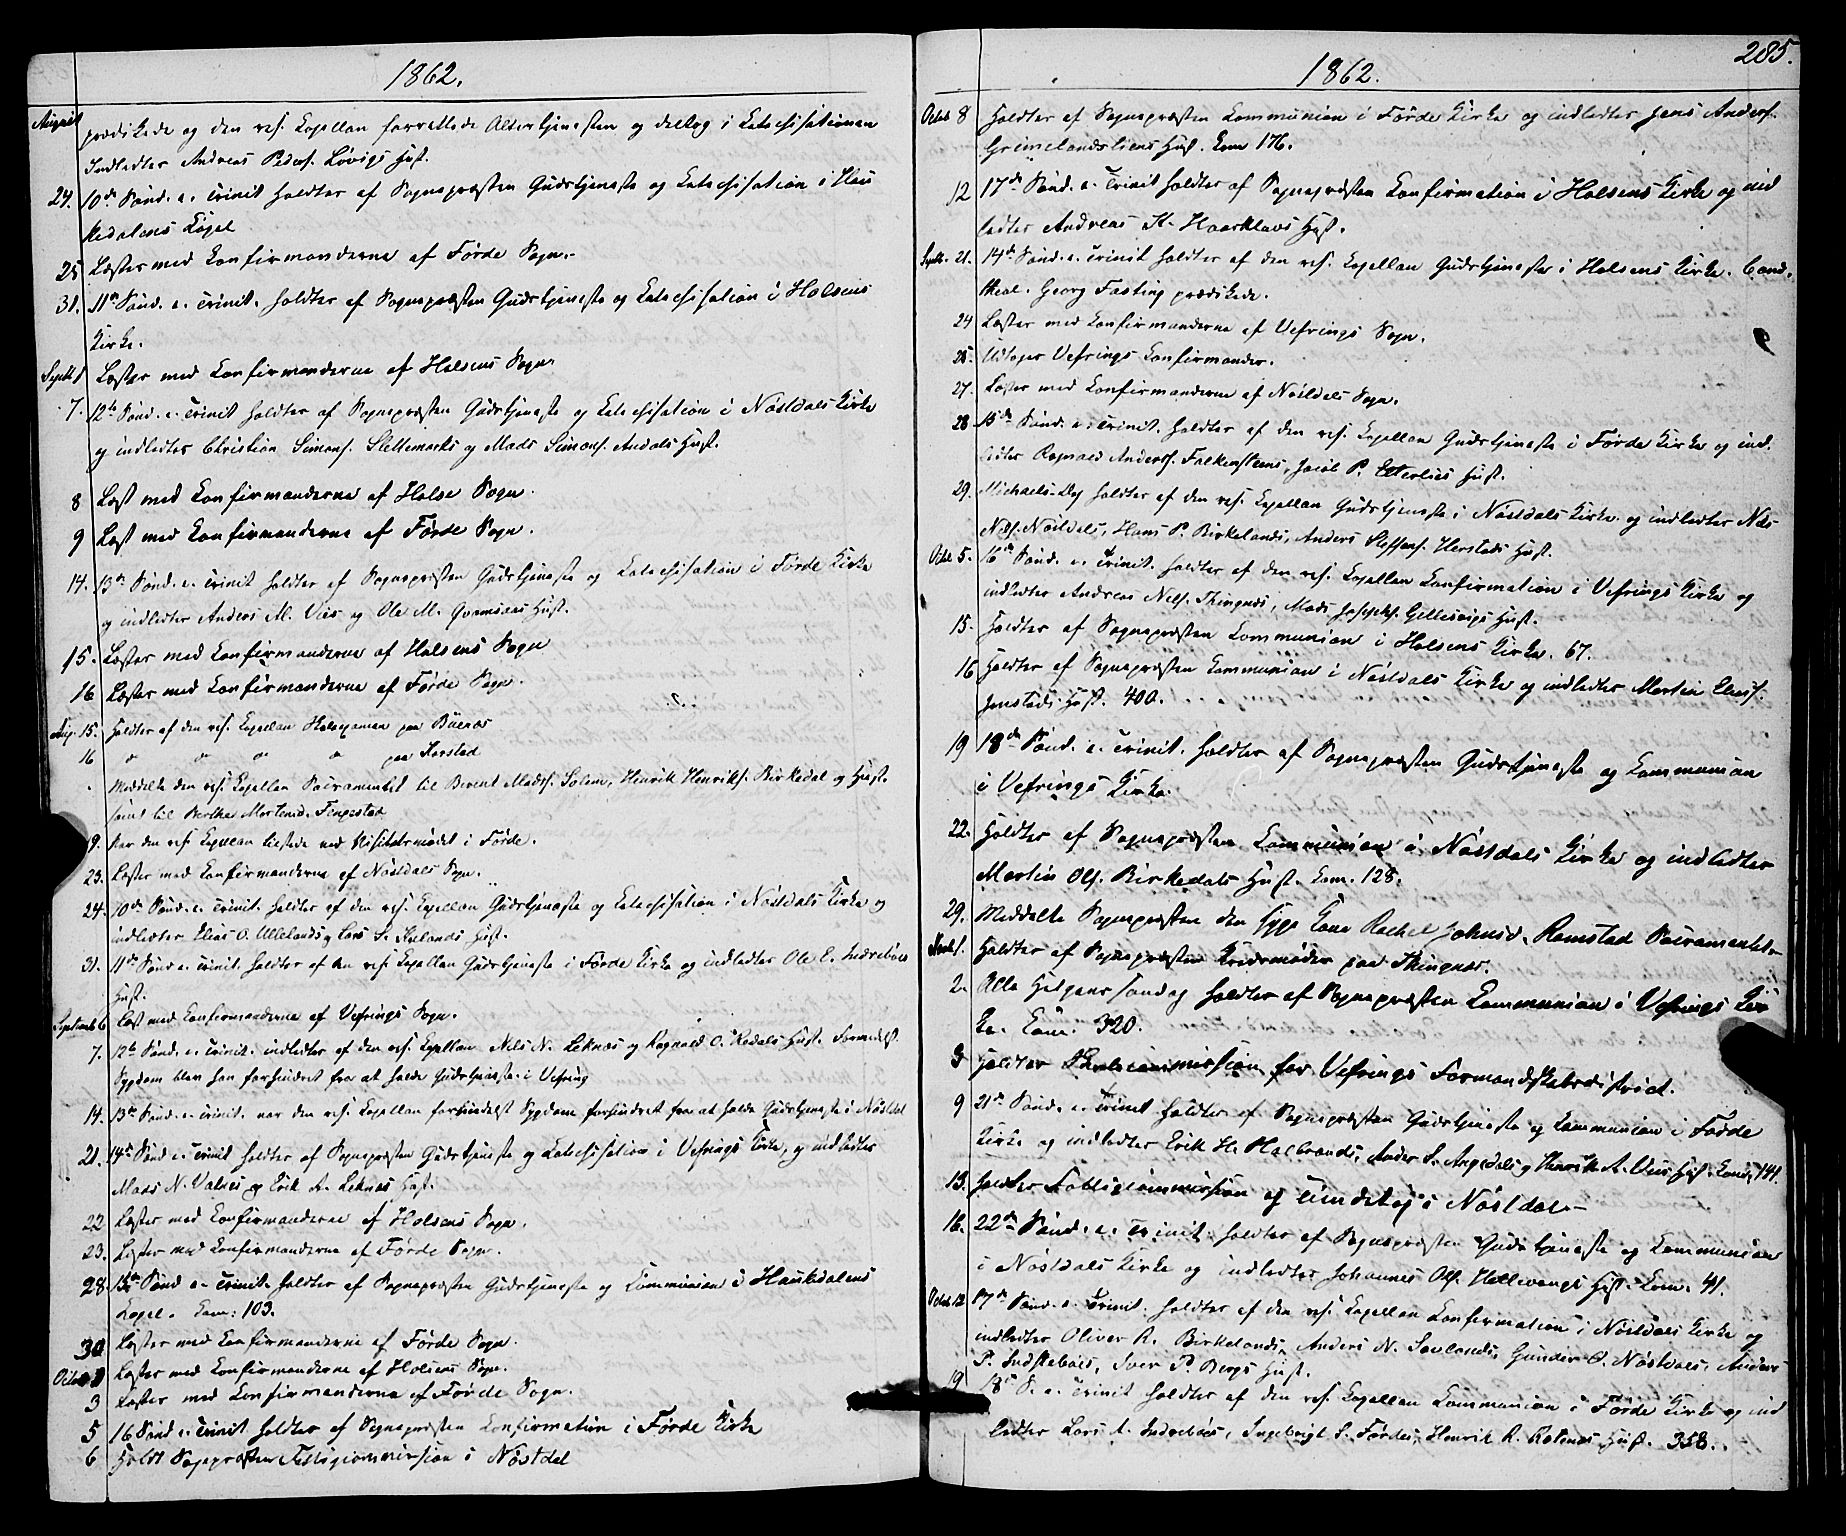 1862.
August prædikede og den res. Capellan forrettede Altertjenesten og deltog i Catechisationen
Indledter Andreas Peders. Løvigs Hust.
24. 10de Sønd. e. Trinit holdter af Sognepræsten Gudstjeneste og Catechisation i Hau
kedalens Capel
25 Læster med Confirmanderne af Førde Sogn.
31. 11te Sønd. e. Trinit. holdter af Sognepræsten Gudstjeneste og Catechisation i Holsens
Kirke.
Septb 1 Læster med Confirmanderne af Holsens Sogn.
7. 12te Sønd. e. Trinit holdter af Sognepræsten Gudstjeneste og Catechisation i Nøstdals Kirke
og indledter Christian Simons. Slettemarks og Mads Simons. Andals Hust.
8 Læst med Confirmanderne af Holse Sogn.
9 Læst med Confirmanderne af Førde Sogn.
14. 13de Sønd. e. Trinit holdter af Sognepræsten Gudstjeneste og Catechisation i Førde Kirke
og indledter Anders M. Vies og Ole M. Hust.
15. Læster med Confirmanderne af Holsens Sogn
16 Læster med Confirmanderne af Førde Sogn.
Aug. 15. Holdter af den res. Capellan paa
16 " " " " paa
Meddelte den res. Capellan Sacramentet til Berent Madss. Solem, Henrik Henriks. Birkedal og Hust.
samt til Berthe Mortensd.
9. Var den res. Capellan tilstede ved i Førde.
23. Læster med Confirmanderne af Nøstdals Sogn.
24. 10de Sønd. e. Trinit. holdter af den res. Capellan Gudstjeneste og Catechisation i Nøstdals Kirke og
indledter Elias O. Ullelands og Lars S. Hust.
31. 11te Sønd. e. Trinit. holdter af den res. Capellan Gudstjeneste i Førde Kirke og indledter Ole E. Indrebøes
Hust.
Septemb 6 Læst med Confirmanderne af Vefrings Sogn.
7. 12te Sønd. e. Trinit. indledter af den res. Capellan Nils N. Leknæs og Ragnald O. Redals Hust. Formedelst
Sygdom blev han forhindret fra at holde Gudstjeneste i Vefring
14. 13de Sønd. e. Trinit. var den res. Capellan formedelst Sygdom forhindret fra at holde Gudstjeneste i Nøstdal
21. 14de Sønd e. Trinit holdter af Sognepræsten Gudstjeneste og Catechisation i Vefrings Kirke, og indledter
Mads N. Valnes og Erik A. Leknæs Hust.
22 Læster med Confirmanderne af Holsens Sogn.
23. Læster med Confirmanderne af Førde Sogn.
28. 15de Sønd e. Trinit. holdter af Sognepræsten Gudstjeneste og Communion i Haukedalens
Capel. Com: 103.
30 Læster med Confirmanderne af Førde Sogn.
Octob 1 Læster med Confirmanderne af Holsens Sogn.
3 Læster med Confirmanderne af Førde Sogn.
5 16 Sønd e. Trinit holdter af Sognepræsten Confirmation i Førde Kirke
6 Holdt Sognepræsten Fattigcommission i Nøstdal
1862.
285.
Octob 8 Holdter af Sognepræsten Communion i Førde Kirke og indledter Jens Anders.
Grimelandsliens Hust. Com 176.
12 17de Sønd. e. Trinit holdter af Sognepræsten Confirmation i Holsens Kirke og ind
ledter Andreas H. Haarklaus Hust.
Septb. 21. 14de Sønd. e. Trinit holdter af den res. Capellan Gudstjeneste i Holsens Kirke. Cand.
theol. Georg Fasting prædikede.
24 Læster med Confirmanderne af Vefrings Sogn.
25. Udtoges Vefrings Confirmander.
27. Læster med Confirmanderne af Nøstdals Sogn.
28 15de Sønd. e. Trinit. holdter af den res. Capellan Gudstjeneste i Førde Kirke og ind.
ledter Ragnald Anderss. Falkensteens, Jacob P. Hust.
29. Michaels-Dag holdter af den res. Capellan Gudstjeneste i Nøstdals Kirke og indledter Nils
Nils. Nøstdals, Hans P. Birkelands, Anders Steffens. Herstads Hust.
Octb. 5. 16de Sønd. e. Trinit. holdter af den res. Capellan Confirmation i Vefrings Kirke og
indledter Andreas Nils. Thingnæs, Mads Josephs. Hust.
15. Holdter af Sognepræsten Communion i Holsens Kirke. 67.
16 Holdter af Sognepræsten Communion i Nøstdals Kirke og indledter Martin Eliass.
Jonstads Hust. 400.
19 18de Sønd. e. Trinit. holdter af Sognepræsten Gudstjeneste og Communion
i Vefrings Kirke.
22. Holdter af Sognepræsten Communion i Nøstdals Kirke og indledter
Martin Ols. Birkedals Hust. Com. 128.
29. Meddelte Sognepræsten den syge Kone Rachel Johnsd. Ramstad Sacramentet.
Novb 1. Holdter af Sognepræsten paa Thingnæs.
2. Alle Helgens Søndag holdter af Sognepræsten Communion i Vefrings Kir
ke. Com. 320.
3 Holdter Skolecommission for Vefrings Formandskabsdistrict.
9 21de Sønd. e. Trinit holdter af Sognepræsten Gudstjeneste og Communion i Førde
Kirke og indledter Erik H. Halbrands, Anders S. Angedals og Henrik A. Vies Hust. Com. 141.
13. Holdter Fattigcommission og i Nøstdal
16. 22de Sønd. e. Trinit. holdter af Sognepræsten Gudstjeneste og Communion
i Nøstdals Kirke og indledter Johannes Ols. Hellevangs Hust. Com. 41.
Octob 12 17de Sønd. e. Trinit. holdter af den res. Capellan Confirmation i Nøstdals Kirke og
indledter Oliver R. Birkelands, Anders N. Sevlands, Gunder O. Nøstdals, Anders
P. Indstebøes, Iver P. Bergs Hust.
19 18de S. e. Trinit holdter af den res. Capellan Communion i Førde Kirke og ind
ledter Lars A. Indrebøes, Ingebrigt S. Førdes, Henrik R. Hust. 358.